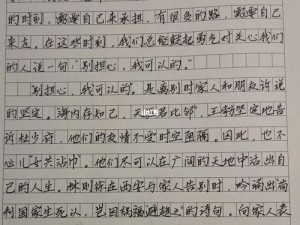 的时刻，需要自己来承担，有很多的路，需要自己
来走。在这些时刻，我们总能鼓起勇气对关心我们
的人说一句：“别担心，我可以的。”
别担心，我可以的。是离别时家人和朋友诉说
的坚定。海内存知己，天涯若比邻，王勃坚定地告
诉杜少府，他们的友情不受时空阻隔。因此，也不
必儿女共沾巾。他们尽可以在广阔的天地中活出自
己的人生。林则徐在西安与家人告别时，吟诵出苟
利国家生死以，岂因祸福避趋之的诗句，向家人表